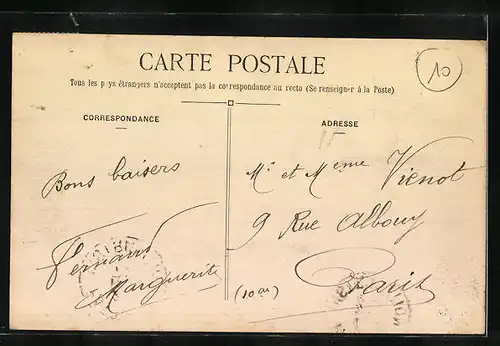 CARTE POSTALE
10
Tous les pays étrangers n'acceptent pas la correspondance au recto (Se renseigner à la Poste)
CORRESPONDANCE
Bons baisers
Fernand
Marguerite
ADRESSE
Mr et Meme Vienot
9 Rue Albouy
Paris
(10e)